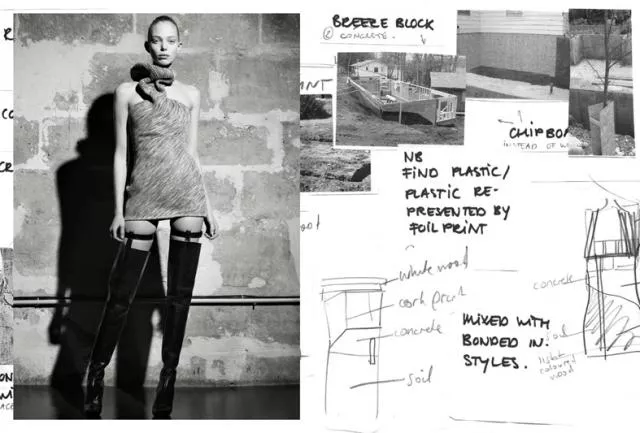 BREEZE BLOCK
② CONCRETE.
CHIPBO
INSTEAD OF W
NB
FIND PLASTIC/
PLASTIC RE-
PRESENTED BY
FOIL PRINT
white wood
cork print
concrete
soil
MIXED WITH
BONDED IN.
STYLES.
concrete
light
coloured
wood